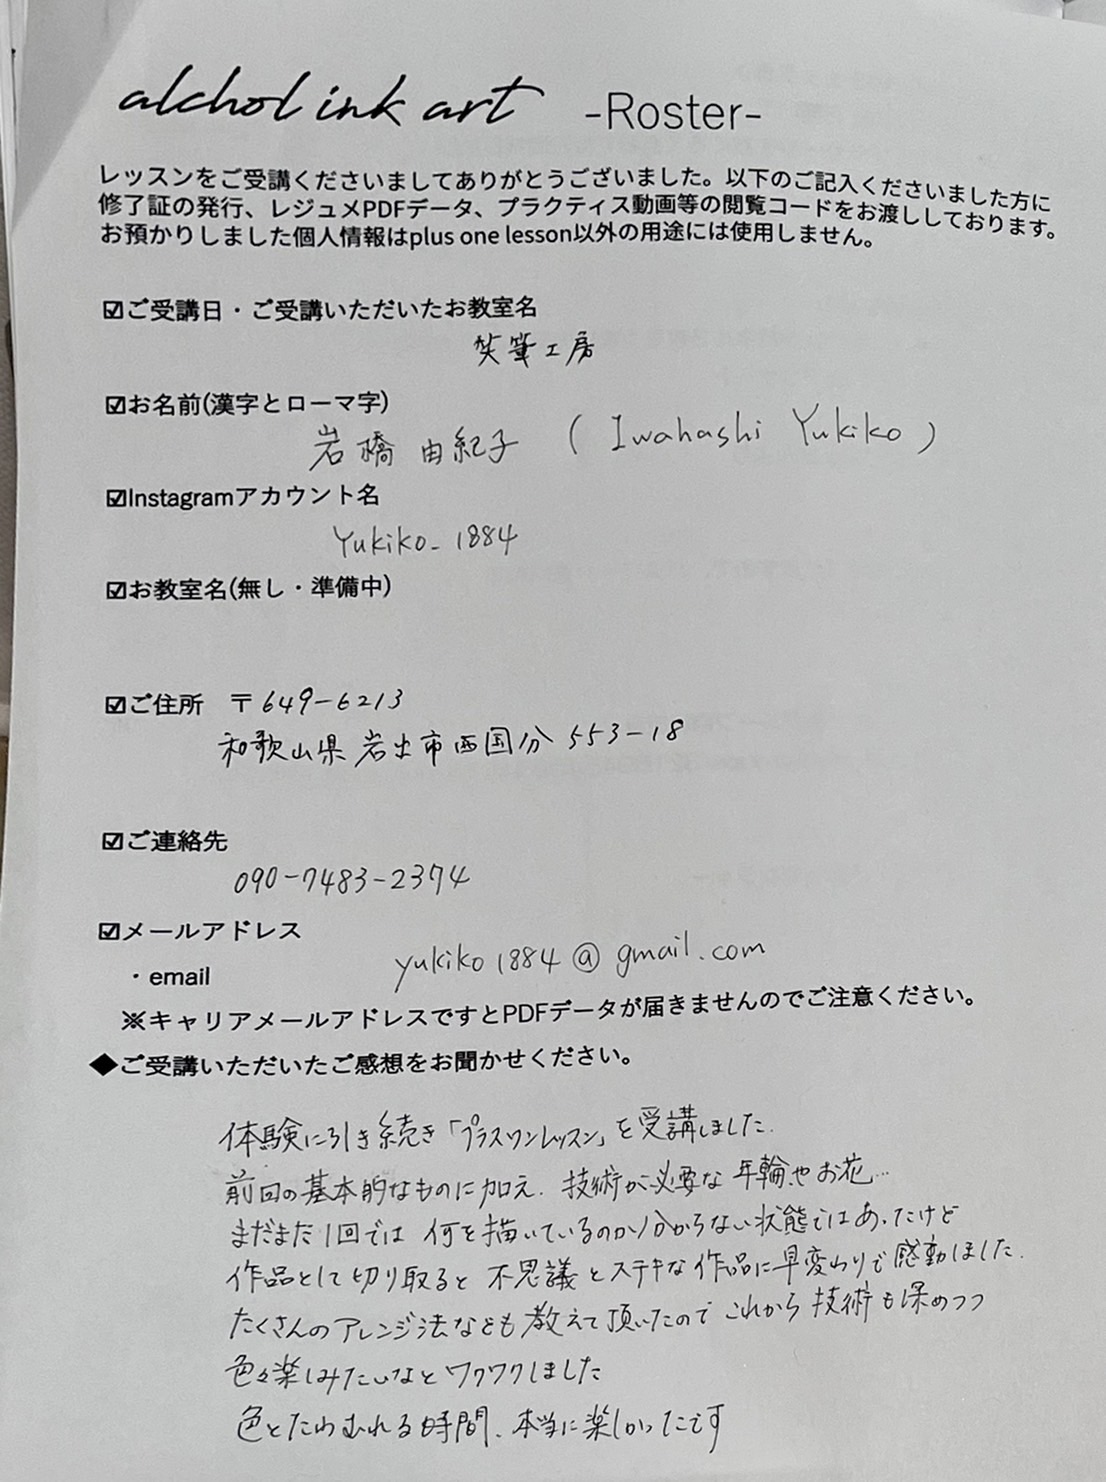 alchol ink art -Roster-
レッスンをご受講くださいましてありがとうございました。以下のご記入くださいました方に
修了証の発行、レジュメPDFデータ、プラクティス動画等の閲覧コードをお渡ししております。
お預かりしました個人情報はplus one lesson以外の用途には使用しません。
☑ご受講日・ご受講いただいたお教室名
笑筆工房
☑お名前(漢字とローマ字)
岩橋 由紀子 (Iwahashi Yukiko)
☑Instagramアカウント名
Yukiko_1884
☑お教室名(無し・準備中)
☑ご住所 〒649-6213
和歌山県岩出市西国分553-18
☑ご連絡先
090-7483-2374
☑メールアドレス
・email yukiko1884@gmail.com
※キャリアメールアドレスですとPDFデータが届きませんのでご注意ください。
◆ご受講いただいたご感想をお聞かせください。
体験に引き続き「プラスワンレッスン」を受講しました.
前回の基本的なものに加え、技術が必要な年輪やお花…
まだまだ1回では何を描いているのか分からない状態ではあったけど
作品として切り取ると不思議とステキな作品に早変わりで感動しました.
たくさんのアレンジ法なども教えて頂いたのでこれから技術も深めつつ
色々楽しみたいなとワクワクしました
色とたわむれる時間、本当に楽しかったです